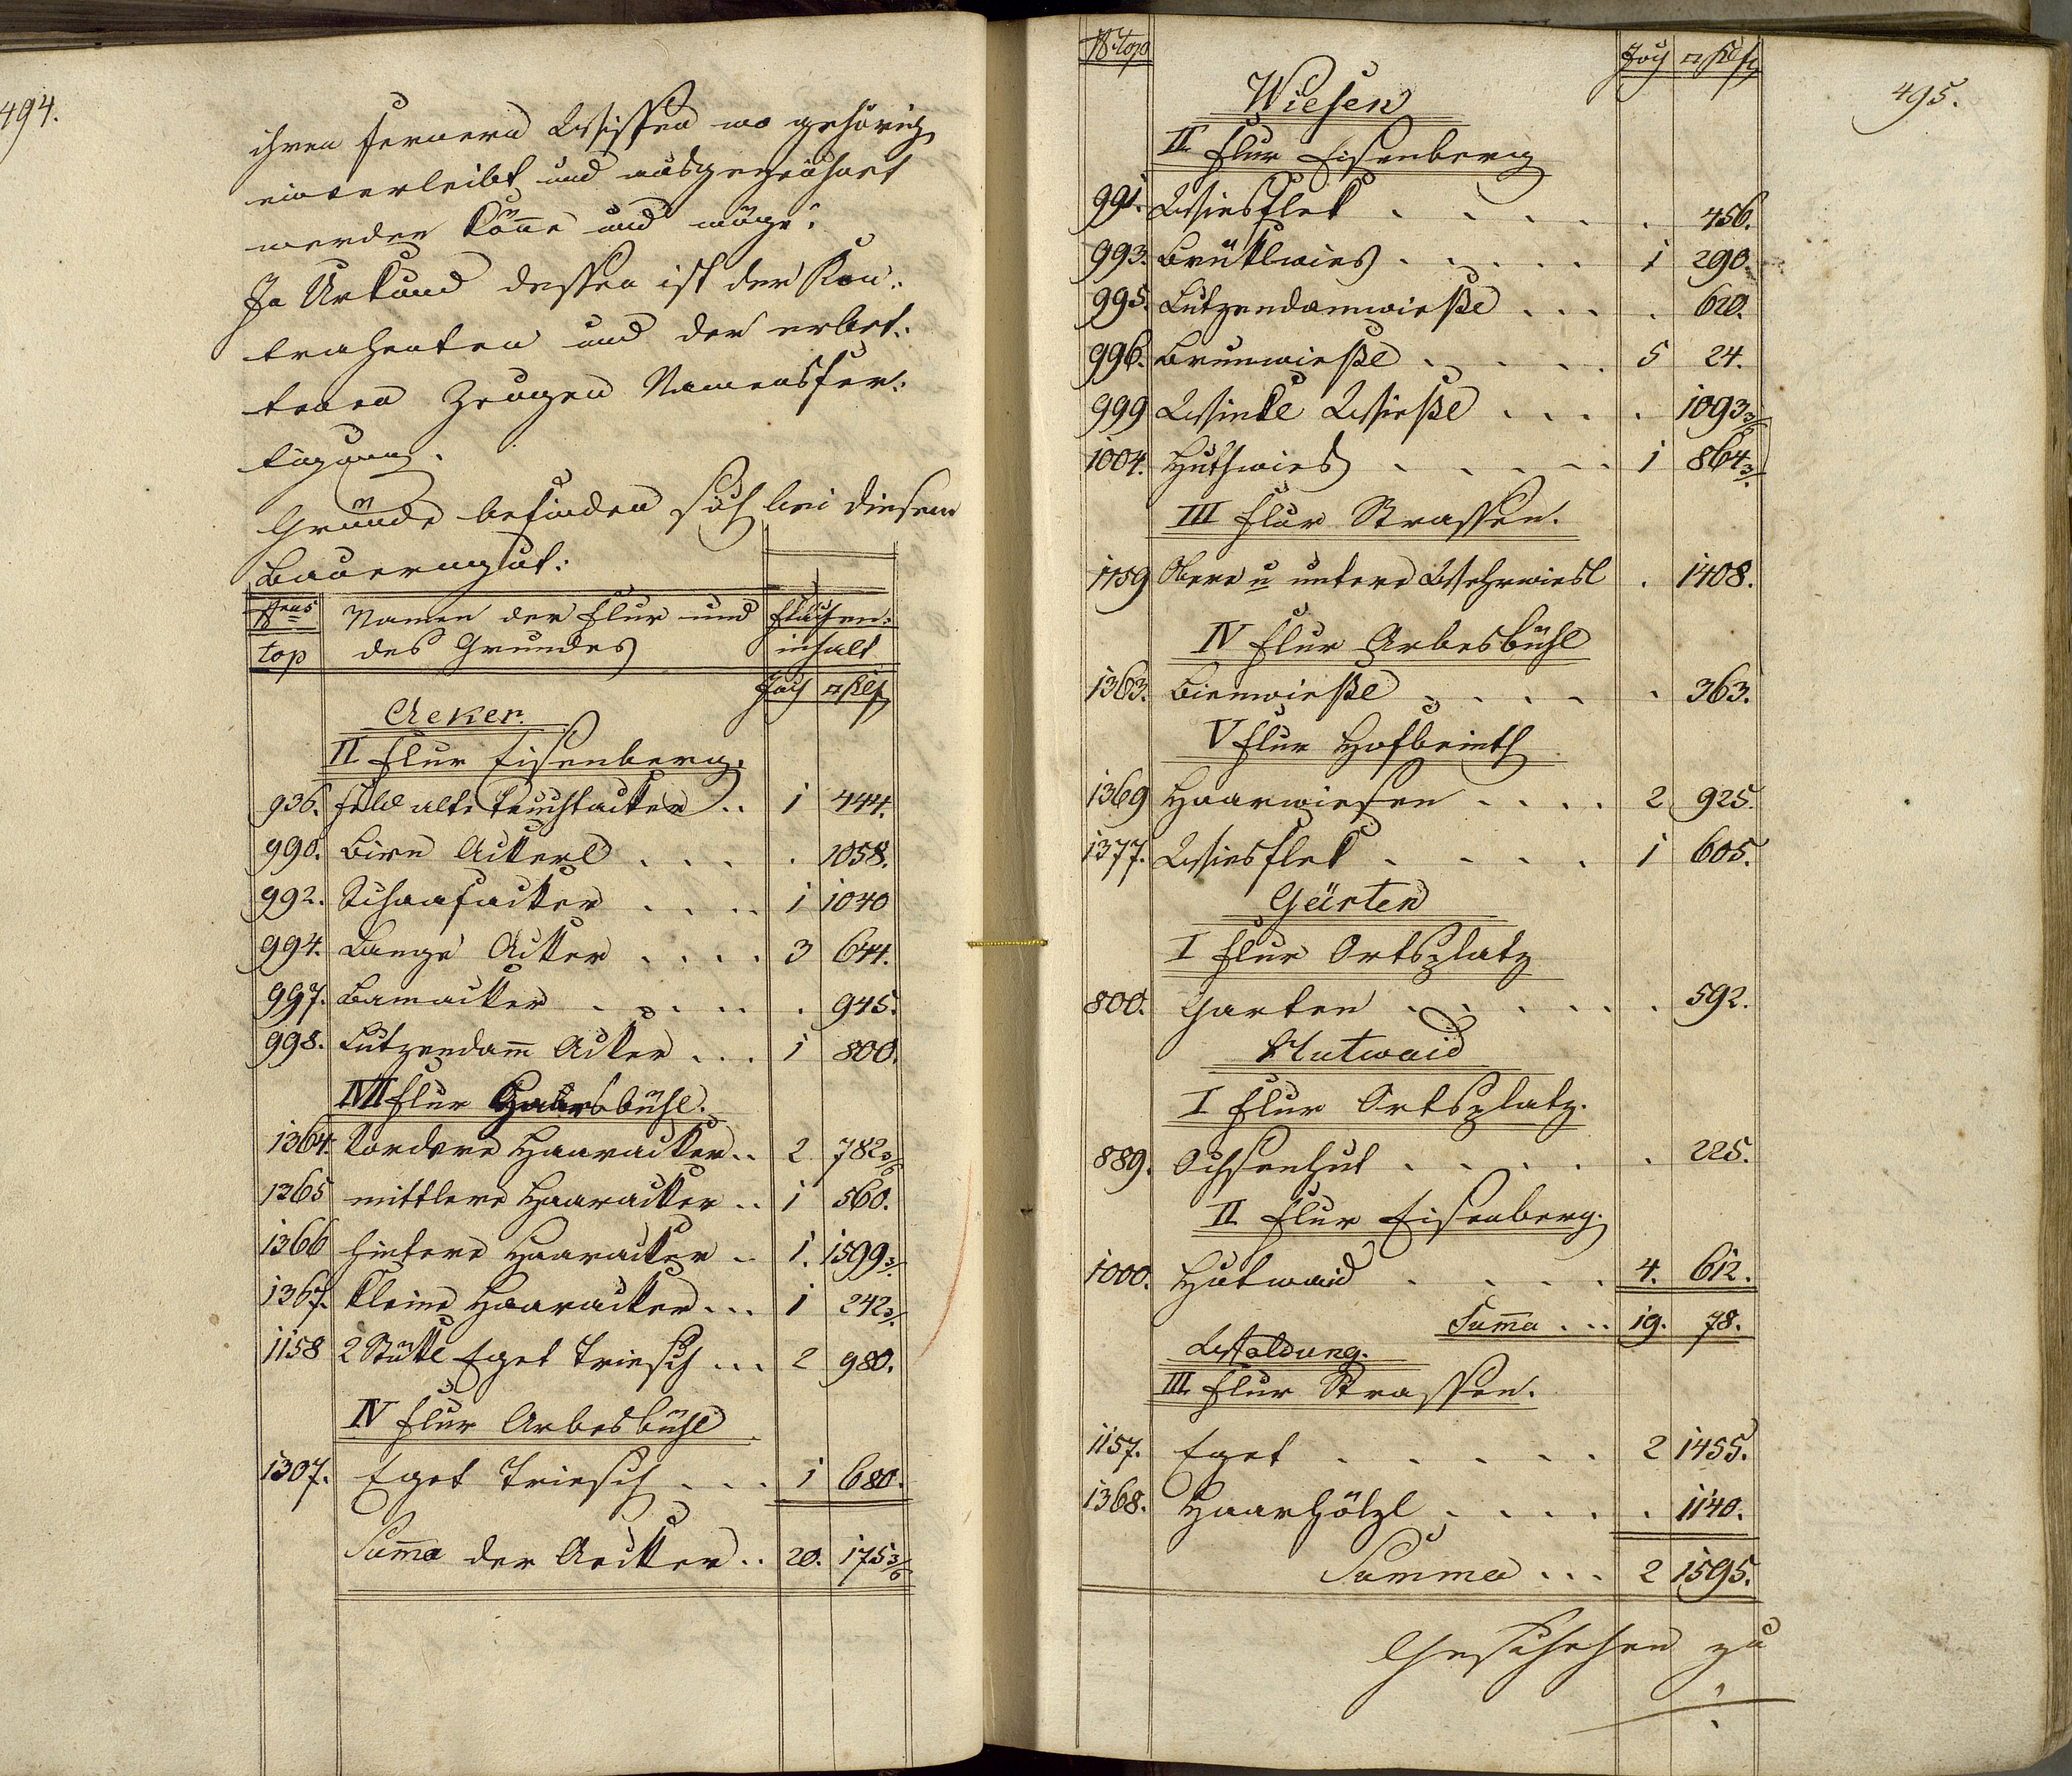 494.
ihren fernern Wissen wo gehörig
einverleibt und ausgezeichnet
werden könne und möge.
In Urkund dessen ist der Kon:
trahenten und der erbet:
tenen Zeugen Namensfer:
tigung.
Gründe befinden sich bei diesem
Bauerngut:
Nrus top Namen der Flur und des Grundes Flächen: inhalt
Joch □Klf
Aeker.
II Flur Eisenberg.
936. Feld alte Teuchtacker .. 1 444.
990. Birn Ackerl . . . . 1058.
992. Schaafacker . . . . 1 1040
994. Lange Acker . . . . 3 644.
997. Bamacker . . . . . . 945.
998. Lutzendam̄ Acker . . . 1 800.
Flur bühl.
1364. Vordere Haaracker .. 2 782 3/6
1365 mittlere Haaracker .. 1 560.
1366 hintere Haaracker .. 1. 1599 3/.
1367. Kleine Haaracker ... 1 242 3/.
1158 2 Stückl Eget Triesch ... 2 980.
IV Flur Arbesbühl
1307. Eget Triesch . . . 1 680.
Sum̄a der Aecker .. 20. 175 3/6
495.
N top Joch □Klf
Wiesen
II Flur Eisenberg
991. Wiesflek . . . . . . 456.
993. Brücklwies . . . . . 1 290.
995. Lutzendamwießl . . . . 620.
996. Brunwießl . . . . . 5 24.
999 Winkl Wießl . . . . 1093 3/6
1004. Huthwies . . . . . 1 864 3/.
III Flur Strassen.
1159 Obere u untere Wehrwiesl . 1408.
IV Flur Arbesbühl
1363. Bienwießl . . . . . 363.
V Flur Hofbeinth
1369 Haarwiesen . . . . 2 925.
1377. Wiesflek . . . . . 1 605.
Gärten
I Flur Ortsplatz
800. Garten . . . . . . 592.
Hutwaid
I Flur Ortsplatz.
889. Ochsenhut . . . . . . 225.
II Flur Eisenberg.
1000. Hutwaid . . . . . 4. 612.
Sum̄a ... 19. 78.
Waldung.
III Flur Strassen.
1157. Eget . . . . . . 2 1455.
1368. Haarhölzl . . . . . 1140.
Summa ... 2 1595.
Geschehen zu